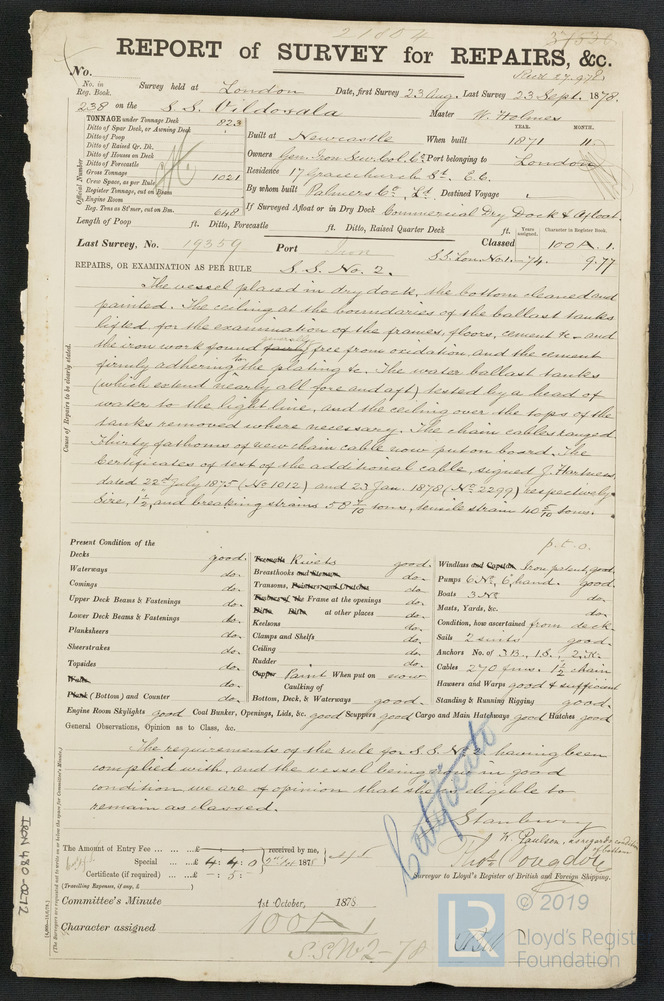 21804 37636
REPORT of SURVEY for REPAIRS, &c.
No. Recd 27.9.78
No. in Reg. Book. Survey held at London Date, first Survey 23 Aug. Last Survey 23 Sept. 1878.
238 on the S.S. Vildosala Master W. Holmes
TONNAGE under Tonnage Deck 823
Ditto of Spar Deck, or Awning Deck
Ditto of Poop
Ditto of Raised Qr. Dk.
Ditto of Houses on Deck
Ditto of Forecastle
Gross Tonnage 1021
Crew Space, as per Rule
Register Tonnage, cut on Beam
Engine Room
Reg. Tons as St'mer, cut on Bm. 648
Official Number
YEAR. MONTH.
Built at Newcastle When built 1871 11
Owners Gen. Iron Screw Col. Co. Port belonging to London
Residence 17 Gracechurch St. E.C.
By whom built Palmers Co. Ld. Destined Voyage
If Surveyed Afloat or in Dry Dock Commercial Dry Dock & Afloat.
Length of Poop ft. Ditto, Forecastle ft. Ditto, Raised Quarter Deck ft. Years assigned. Character in Register Book.
Last Survey, No. 19359 Port Iron Classed 100 A. 1.
S.S. Lon. No. 1. - 74. 9.77
REPAIRS, OR EXAMINATION AS PER RULE S.S. No. 2.
Cause of Repairs to be clearly stated.
The vessel placed in dry dock, the bottom cleaned and
painted. The ceiling at the boundaries of the ballast tanks
lifted for the examination of the frames, floors, cement &c. and
the iron work found free from oxidation, and the cement
firmly adhering to the plating &c. The water ballast tanks
(which extend nearly all fore and aft) tested by a head of
water to the light line, and the ceiling over the tops of the
tanks removed where necessary. The chain cables ranged
Thirty fathoms of new chain cable now put on board. The
Certificates of test of the additional cable, signed J. Hartness
dated 22nd July 1875 (No 1012) and 23 Jan. 1878 (No. 2299) respectively
Size, 1½, and breaking strains 58 8/10 tons, tensile strain 40 5/10 tons.
p.t.o.
Present Condition of the
Decks good.
Waterways do.
Comings do.
Upper Deck Beams & Fastenings do.
Lower Deck Beams & Fastenings do.
Planksheers do.
Sheerstrakes do.
Topsides do.
Wales do.
Plank (Bottom) and Counter do.
Treenails Rivets good.
Breasthooks and Stemson do.
Transoms, Pointers and Crutches do.
Timbers of the Frame at the openings do.
Ditto Ditto at other places do.
Keelsons do.
Clamps and Shelfs do.
Ceiling do.
Rudder do.
Copper Paint When put on now
Caulking of
Bottom, Deck, & Waterways good.
Windlass and Capstan Iron patent, good.
Pumps 6 No. 6, hand. good.
Boats 3 No. do.
Masts, Yards, &c. do.
Condition, how ascertained from deck
Sails 2 suits good.
Anchors No. of 3 B., 1 S., 2 K.
Cables 270 fms. 1½ chain
Hawsers and Warps good & sufficient
Standing & Running Rigging good.
Engine Room Skylights good Coal Bunker, Openings, Lids, &c. good Scuppers good Cargo and Main Hatchways good Hatches good
General Observations, Opinion as to Class, &c.
The requirements of the rule for S.S. No. 2. having been
complied with, and the vessel being now in good
condition, we are of opinion that she is eligible to
remain as classed.
Certificate
J. Stanbury
J. W. Paulsen, as regards condition of bottom
The Amount of Entry Fee £ : : received by me,
Special £ 4. 4. 0 1878
Certificate (if required) £ - : 5 : -
(Travelling Expenses, if any, £ )
Surveyor to Lloyd's Register of British and Foreign Shipping.
Committee's Minute 1st October, 1878
Character assigned 100 A 1
S.S. No 2 - 78
IRON 480-0272
LR
© 2019
Lloyd's Register
Foundation